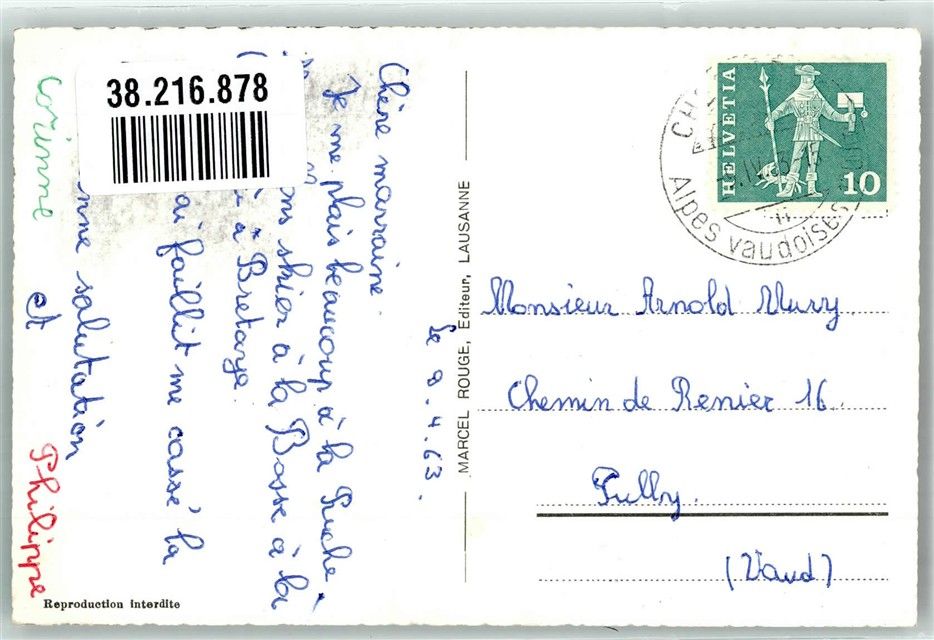 Le 8.4.63.
Chère marraine.
Je me plais beaucoup à la Ruche.
skier à la Bosse à la
à Bretaye.
ai faillit me cassé la
nne salutation
Corinne et Philippe
38.216.878
Reproduction interdite
MARCEL ROUGE, Editeur, LAUSANNE
HELVETIA
10
Alpes vaudoises
Monsieur Arnold Mury
Chemin de Renier 16.
Pully.
(Vaud)